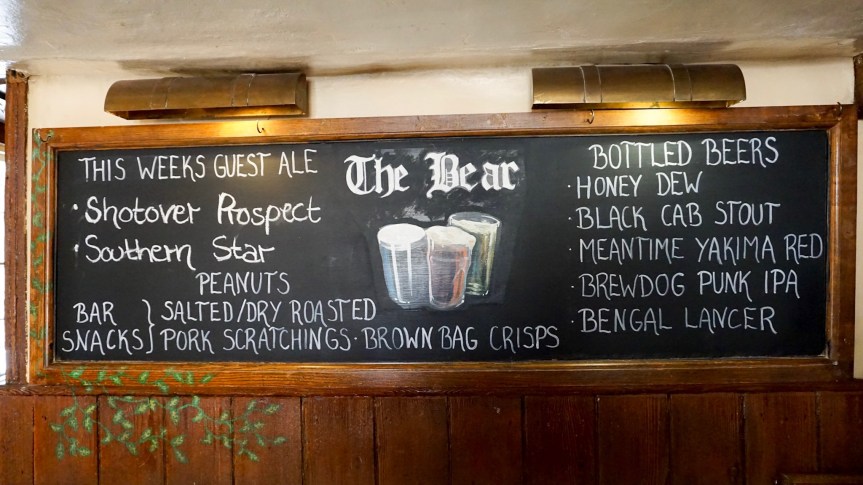 THIS WEEKS GUEST ALE
· Shotover Prospect
· Southern Star
PEANUTS
BAR SNACKS } SALTED/DRY ROASTED
PORK SCRATCHINGS · BROWN BAG CRISPS
The Bear
BOTTLED BEERS
· HONEY DEW
· BLACK CAB STOUT
· MEANTIME YAKIMA RED
· BREWDOG PUNK IPA
· BENGAL LANCER